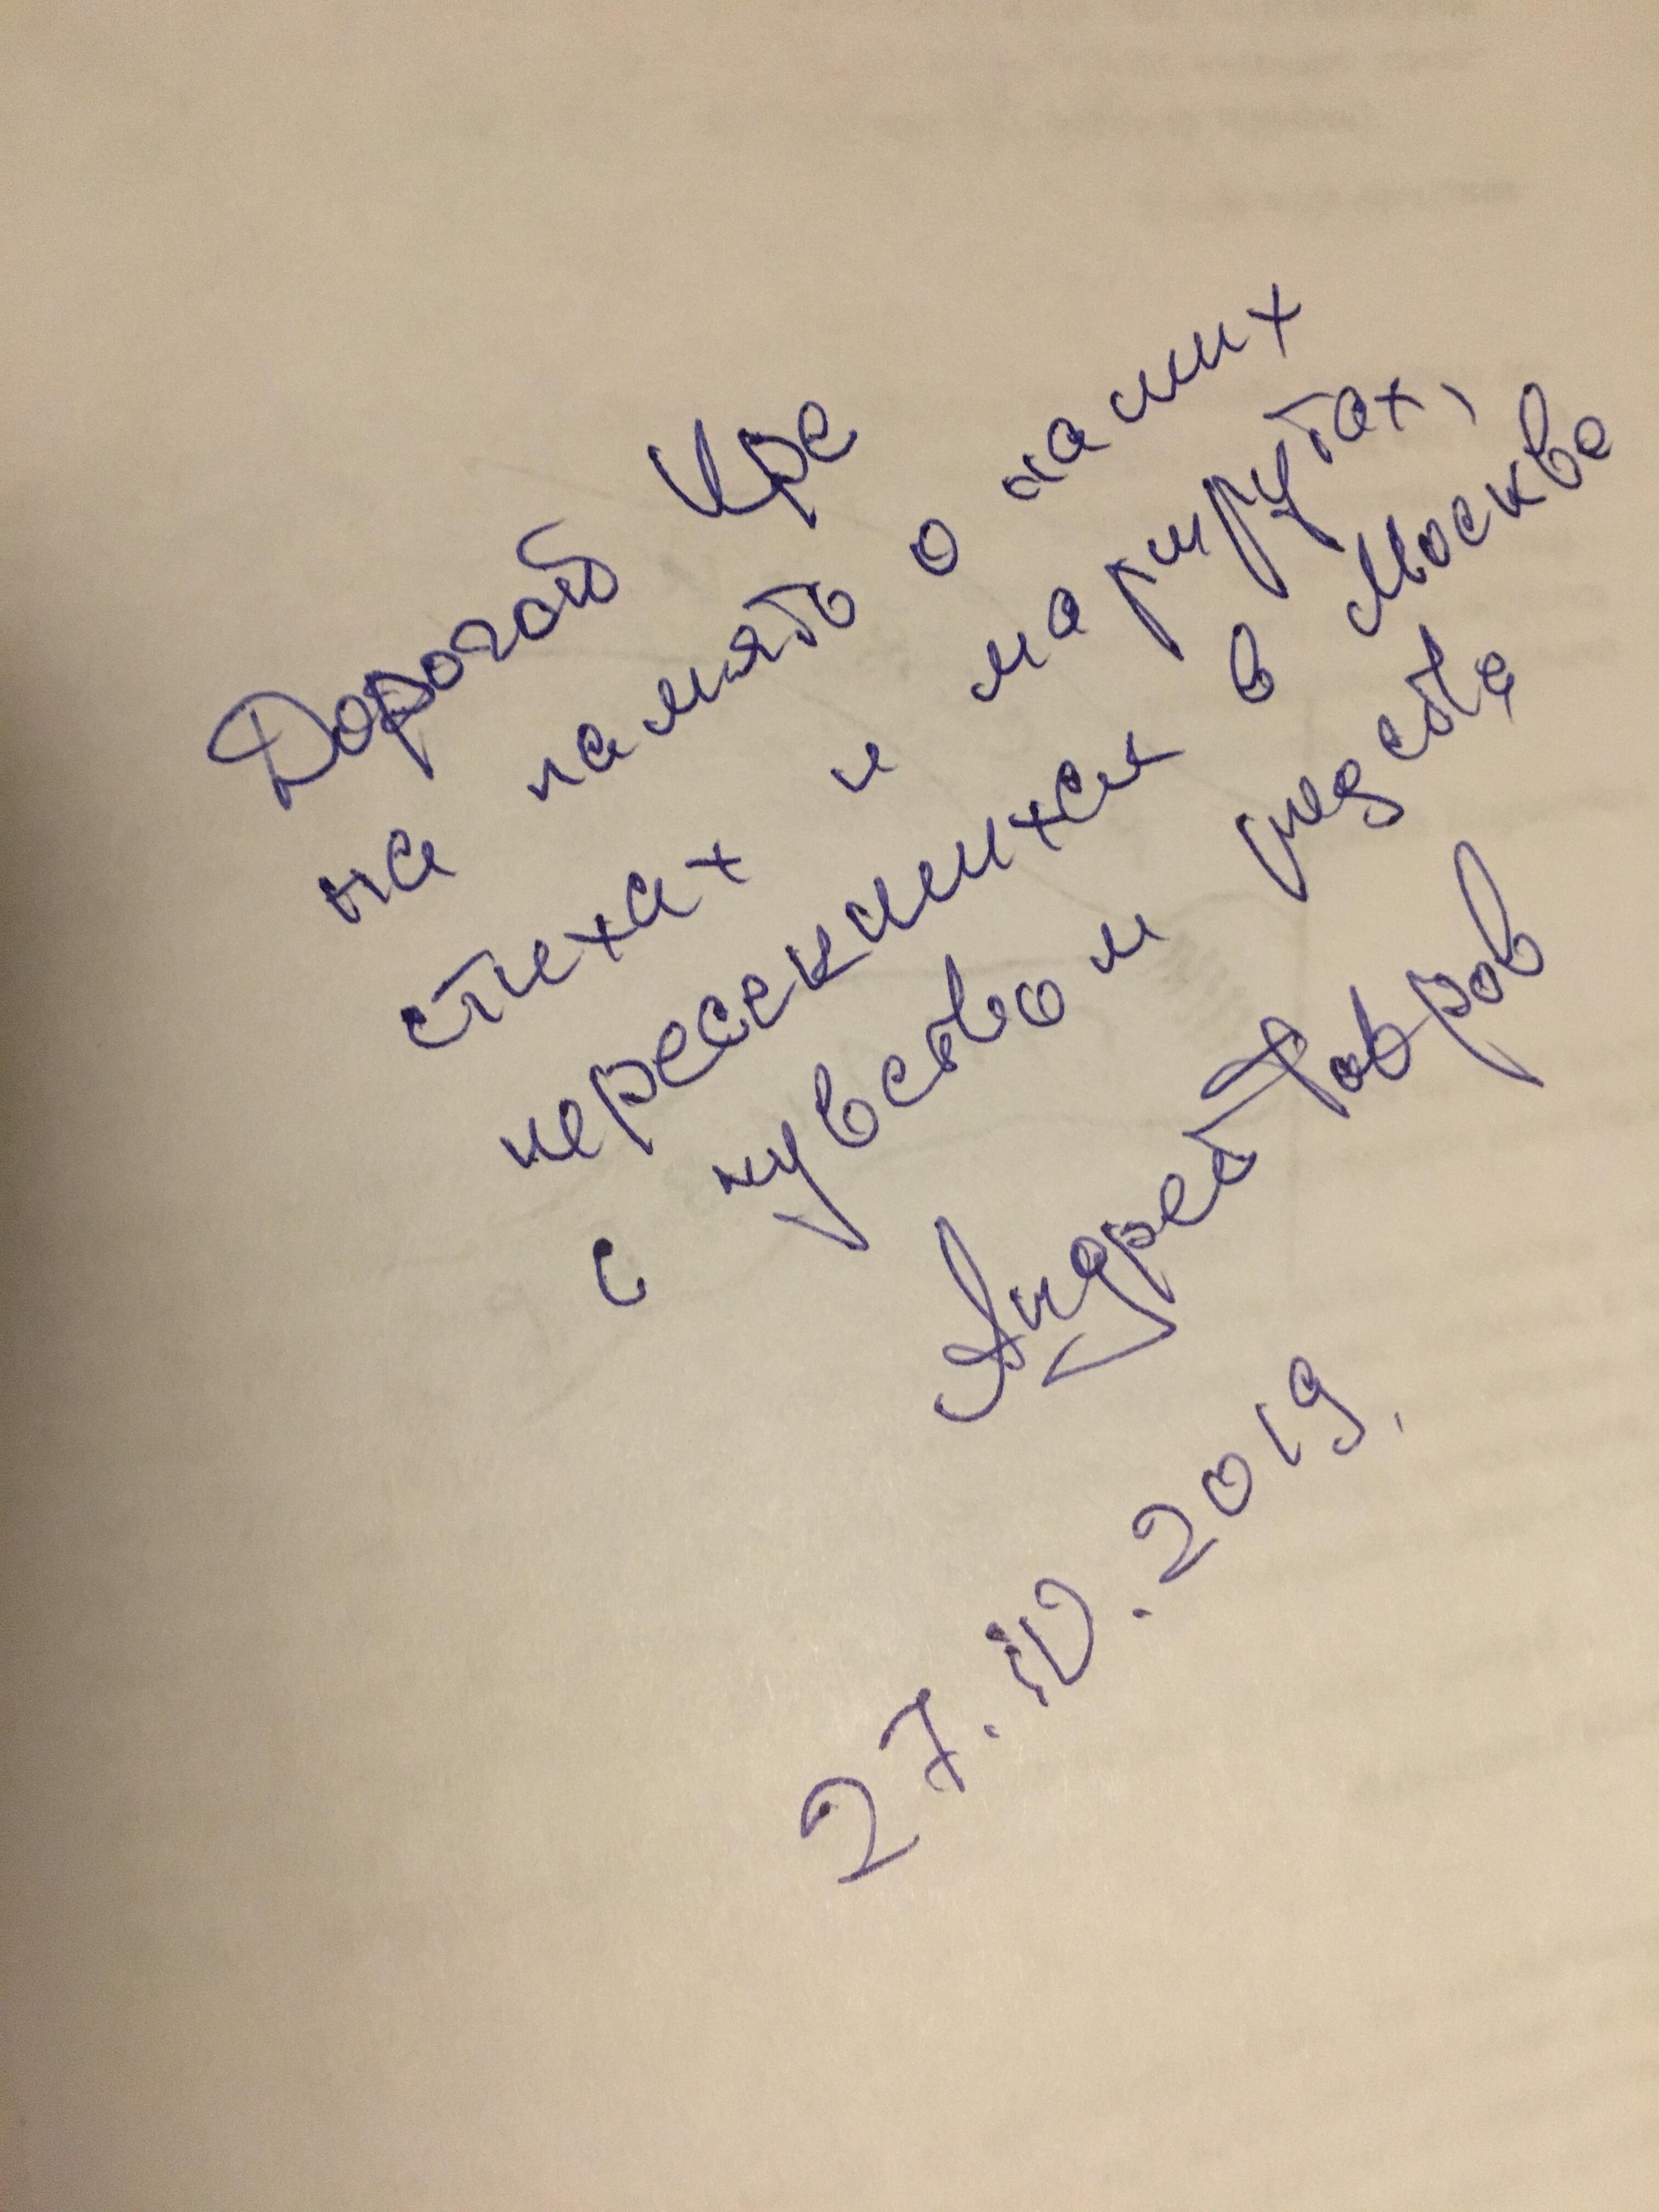 Дорогой Ире
на память о наших
стихах и маршрутах,
пересекшихся в Москве
с чувством родства
Андрей Тавров
27.IV.2019.